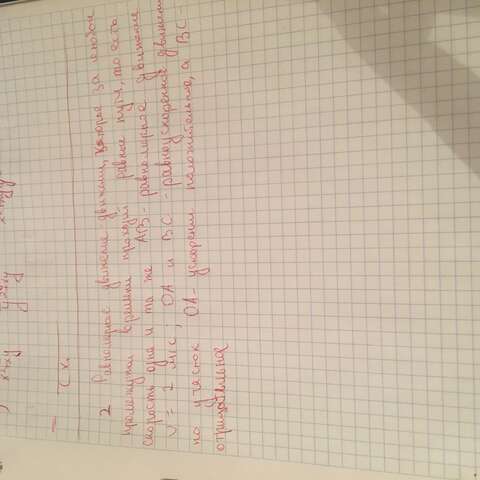 2 Равномерное движение движении, которое за любой
промежутки времени проходил равные пути, то есть
скорость одна и та же AB - равномерное движение
V = 2 м/с; OA и BC - равноускоренное движении
но участок OA - ускорение положительное, а BC -
отрицательное